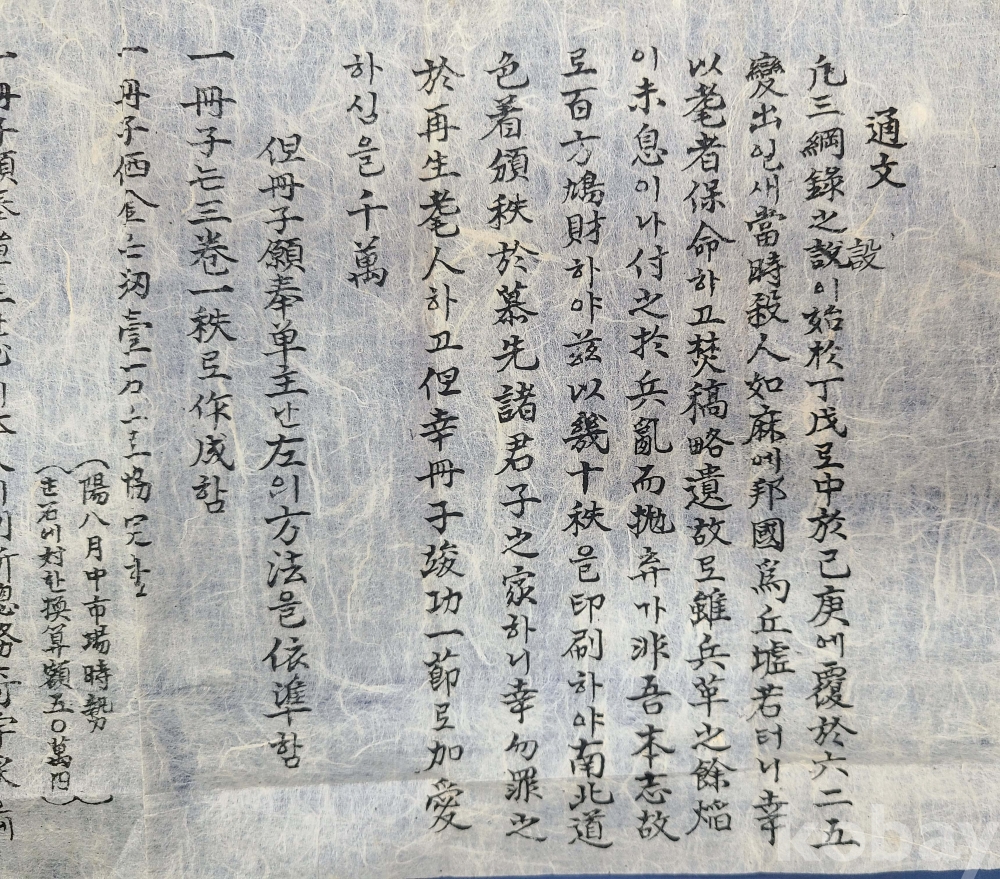 通文
凡三綱錄之說이始於丁戊로中於己庚에覆於六二五
設
變出인새當時殺人如麻에邦國爲丘墟若터니幸
以耄者保命하고焚稿略遺故로雖兵革之餘焰
이未息이나付之於兵亂而抛弃가非吾本志故
로百方鳩財하야玆以幾十秩을印刷하야南北道
色着頒秩於慕先諸君子之家하니幸勿罪之
於再生耄人하고但幸冊子竣功一節로加愛
하심을千萬
但冊子願奉單主난左의方法을依準함
一冊子는三卷一秩로作成함
一冊子価金은
(陽八月中市場時勢
対한換算額五〇萬円)
一冊子願
kobay